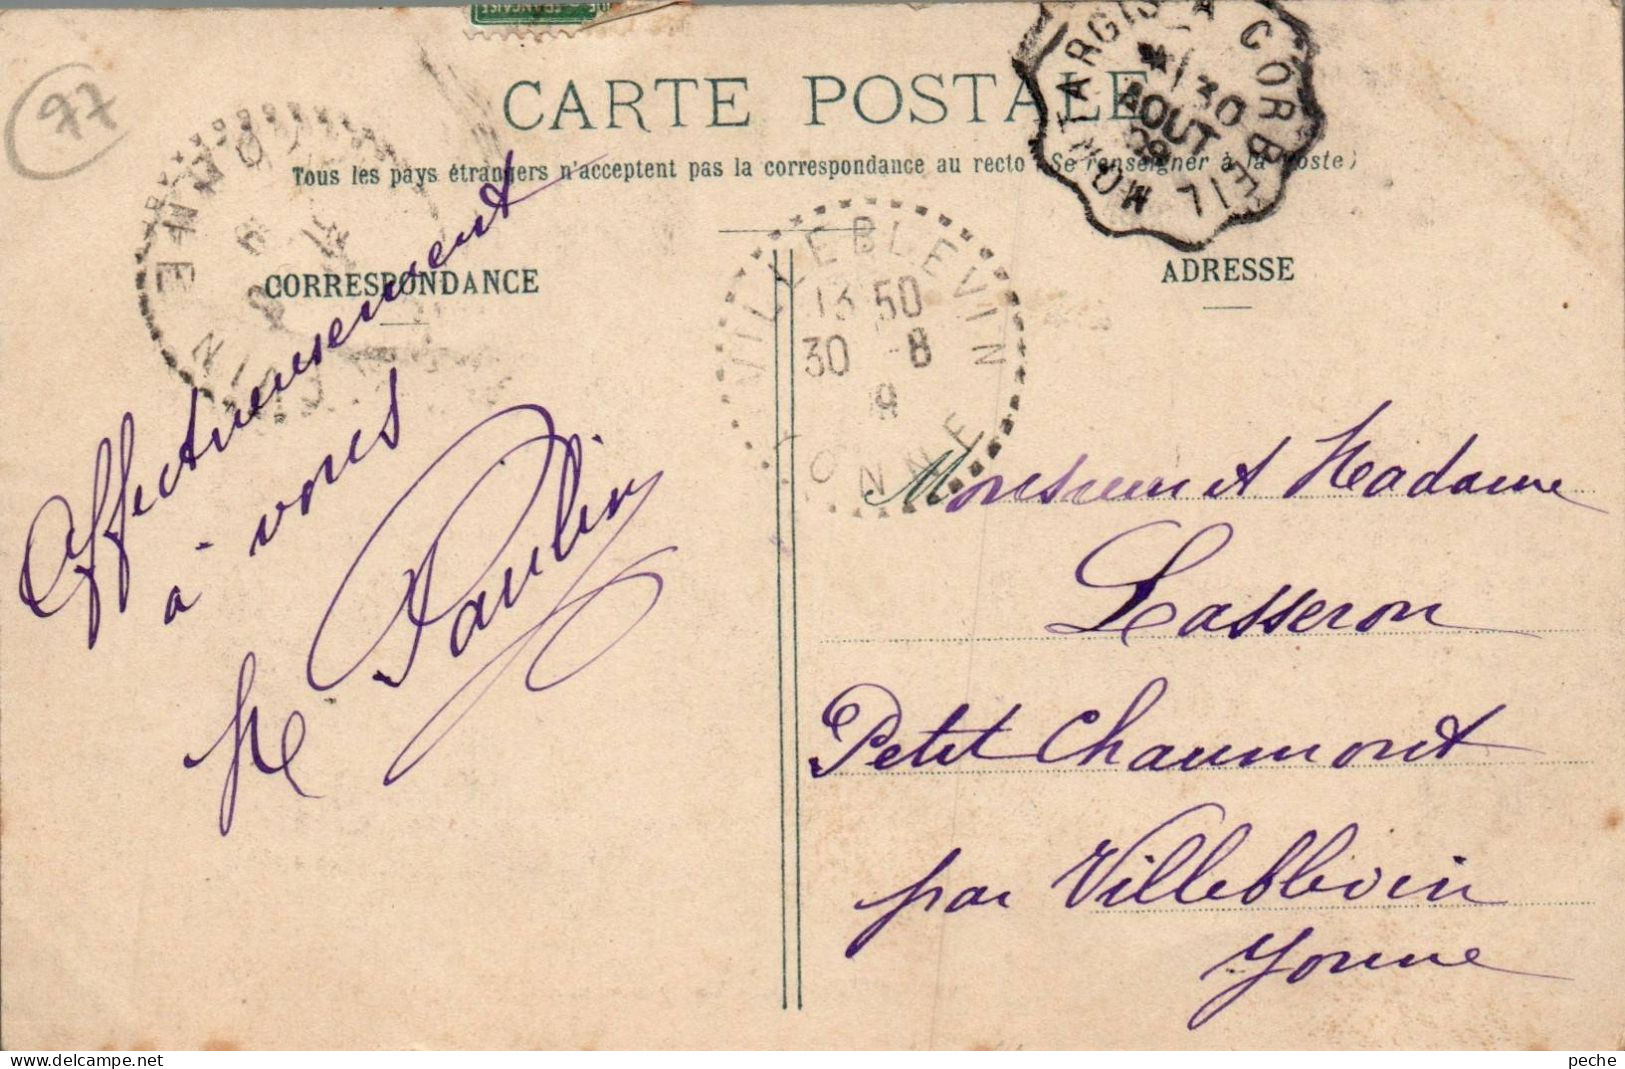 77
CARTE POSTALE
Tous les pays étrangers n'acceptent pas la correspondance au recto (Se renseigner à la Poste)
MONTARGIS A CORBEIL
30
AOUT
09
CORRESPONDANCE
ADRESSE
VILLEBLEVIN
13 50
30 -8
9
YONNE
Affectueusement
à vous
Paulin
Monsieur et Madame
Lasseron
Petit Chaumont
par Villeblevin
Yonne
Delcampe.net
peche